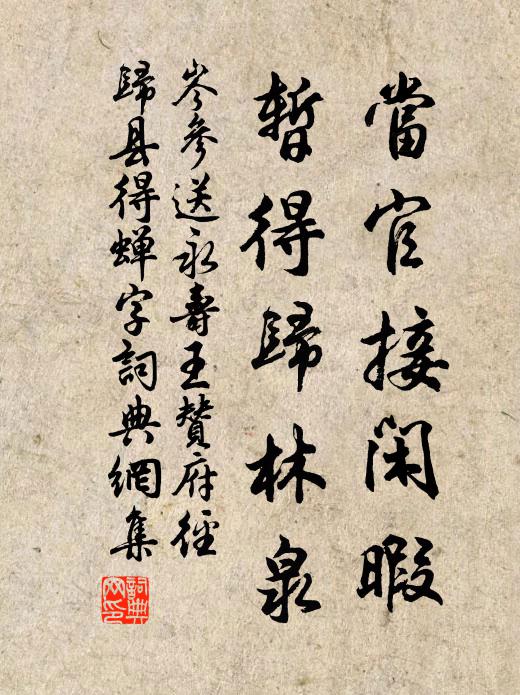 當官接閑暇
暫得歸林泉
岑參送永壽王贊府徑
歸县得蝉字詞典網集